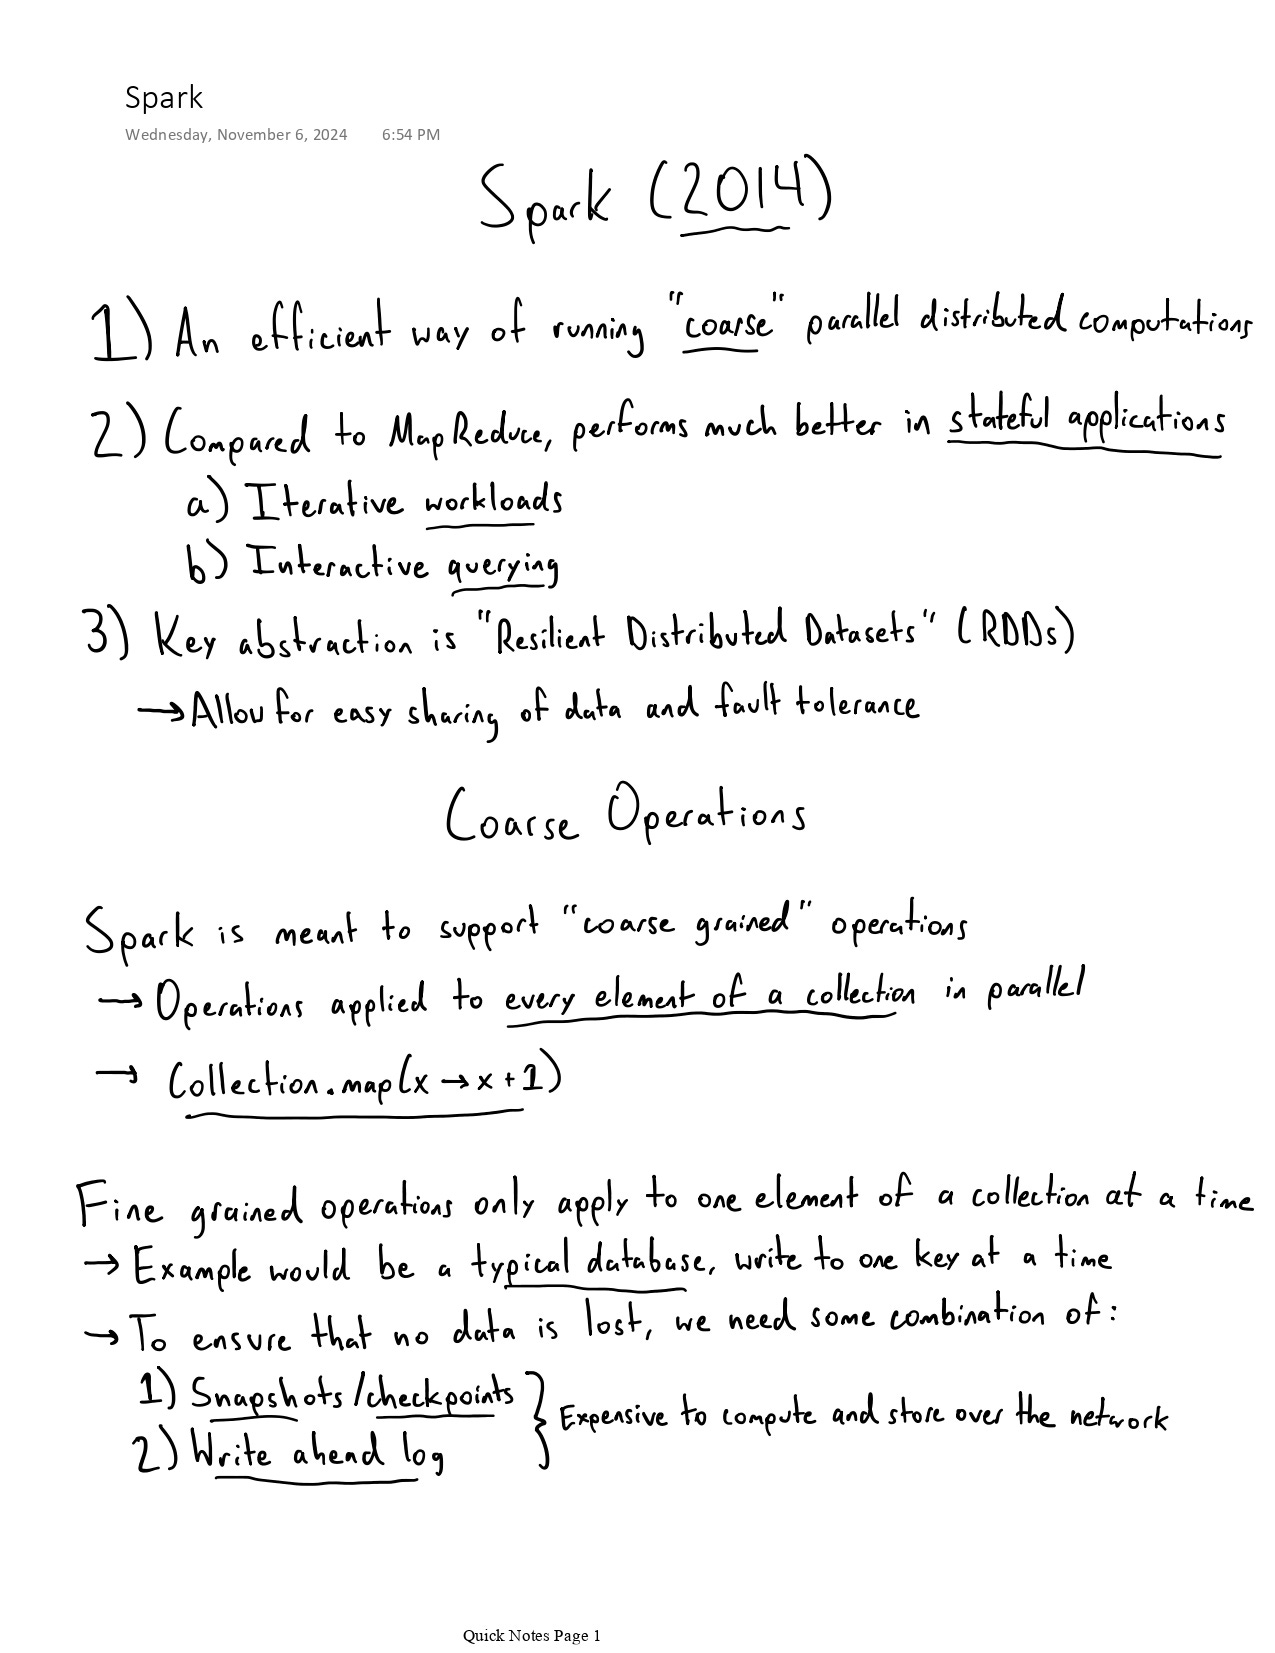 Spark
Wednesday, November 6, 2024 6:54 PM
Spark (2014)
1) An efficient way of running "coarse" parallel distributed computations
2) Compared to MapReduce, performs much better in stateful applications
a) Iterative workloads
b) Interactive querying
3) Key abstraction is "Resilient Distributed Datasets" (RDDs)
→ Allow for easy sharing of data and fault tolerance
Coarse Operations
Spark is meant to support "coarse grained" operations
→ Operations applied to every element of a collection in parallel
→ Collection.map(x → x + 1)
Fine grained operations only apply to one element of a collection at a time
→ Example would be a typical database, write to one key at a time
→ To ensure that no data is lost, we need some combination of:
1) Snapshots/checkpoints
2) Write ahead log
} Expensive to compute and store over the network
Quick Notes Page 1